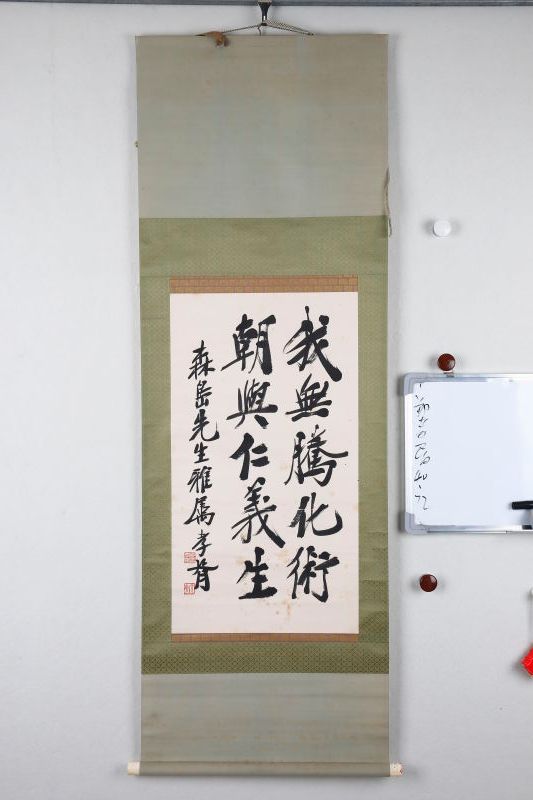 我無騰化術
朝與仁義生
森岳先生雅属孝胥